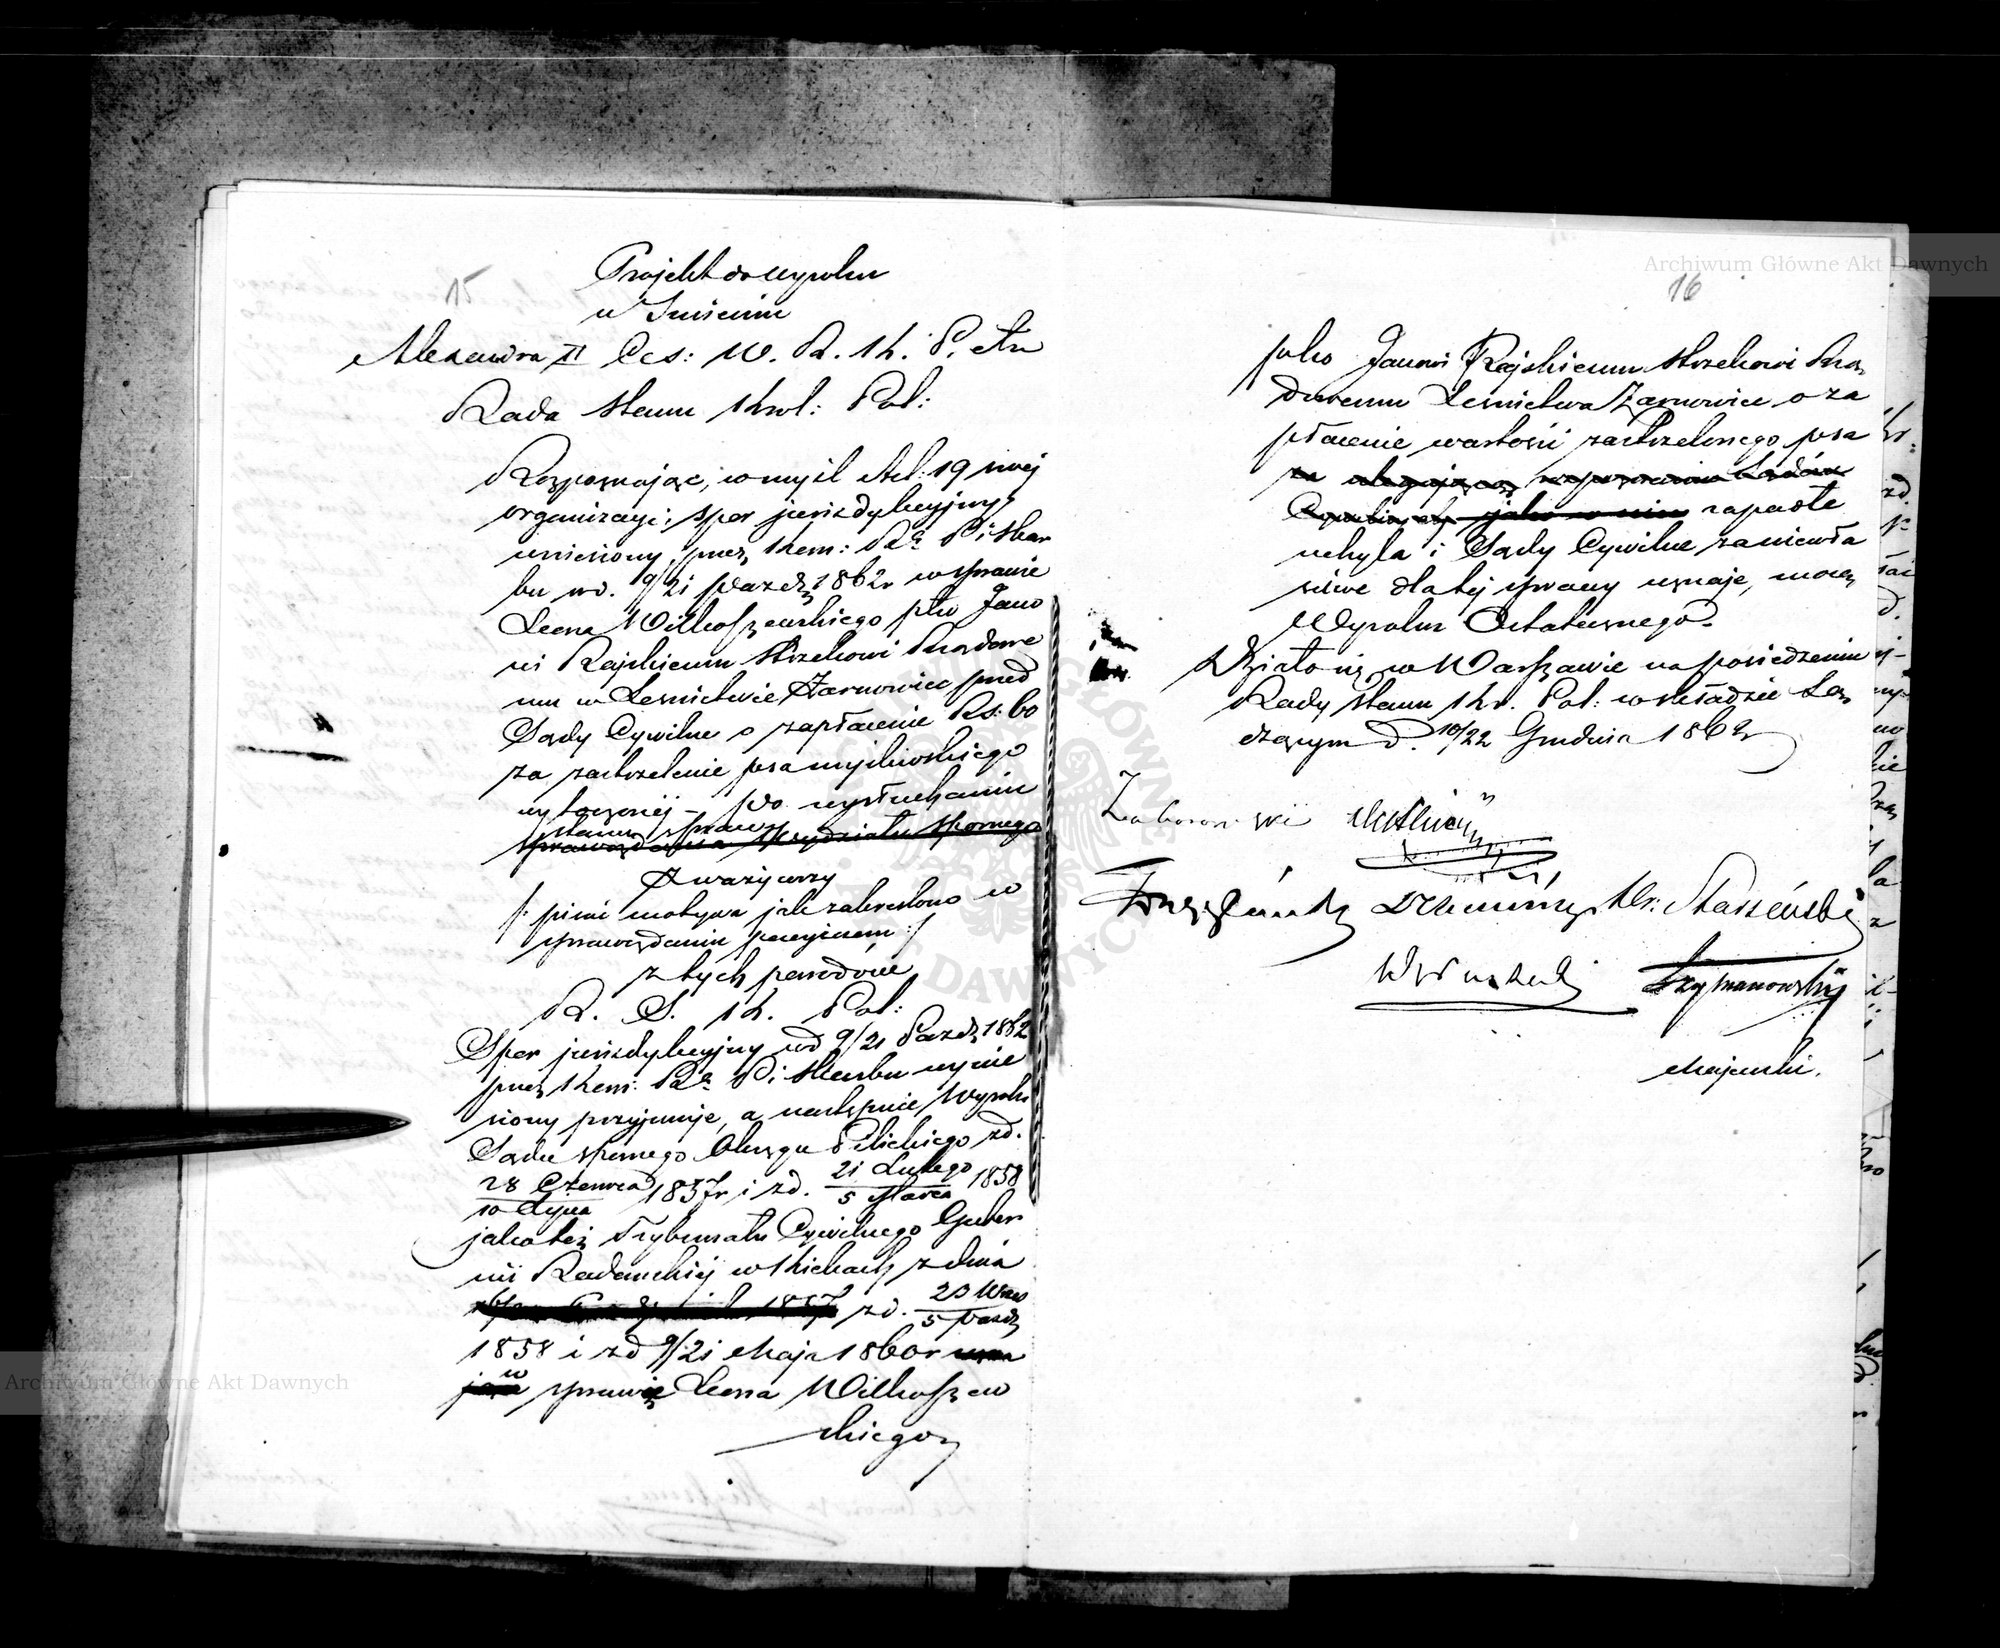 15
Projekt do wyroku
w Imieniu
Alexandra II Ces: W. R. K. P. etc
Rada Stanu Król: Pol:
Rozpoznając, w myśl Art: 19 swej
organizacyi, spór jurisdykcyjny
wniesiony przez Kom: Rz: P. i Skar
bu w d. 9/21 Paźdz 1862r w sprawie
Leona Wilkoszewskiego pko Jano
wi Rajskiemu Strzelcowi Rządowe
mu w Leśnictwie Żarnowiec przed
Sądy Cywilne o zapłacenie Rs: 60
za zastrzelenie psa myśliwskiego
wytoczonéj – po wysłuchaniu
stanu sprawy
sprawozdania Wydziału Spornego
Zważywszy
/: pisać motywa jak zakreślono w
sprawozdaniu przyjętem :/
z tych powodów
R. S. K. Pol:
Spór jurisdykcyjny w d 9/21 Paźdz 1862
przez Kom: Rz: P. i Skarbu wynie
siony przyjmuje, a następnie Wyroki
Sądu spornego Okręgu Pilickiego z d.
28 Czerwca / 10 Lipca 1857r i z d. 21 Lutego / 5 Marca 1858
jakoteż Trybunału Cywilnego Guber
nii Radomskiéj w Kielcach z dnia
z d. 23 Wrześ / 5 Paźdz
1858 i z d 9/21 Maja 1860r
w sprawie Leona Wilkoszew
skiego
16
pko Janowi Rajskiemu Strzelcowi Rzą
dowemu Leśnictwa Żarnowiec o za
płacenie wartości zastrzelonego psa
zapadłe
uchyla i Sądy Cywilne za niewła
ściwe dla tej sprawy uznaje, mocą
Wyroku Ostatecznego.
Działo się w Warszawie na posiedzeniu
Rady Stanu Kr. Pol: w składzie Są
dzącym d. 10/22 Grudnia 1862r
Zaborowski
Staszewski
Szymanowski
Majewski.
Archiwum Główne Akt Dawnych
Archiwum Główne Akt Dawnych